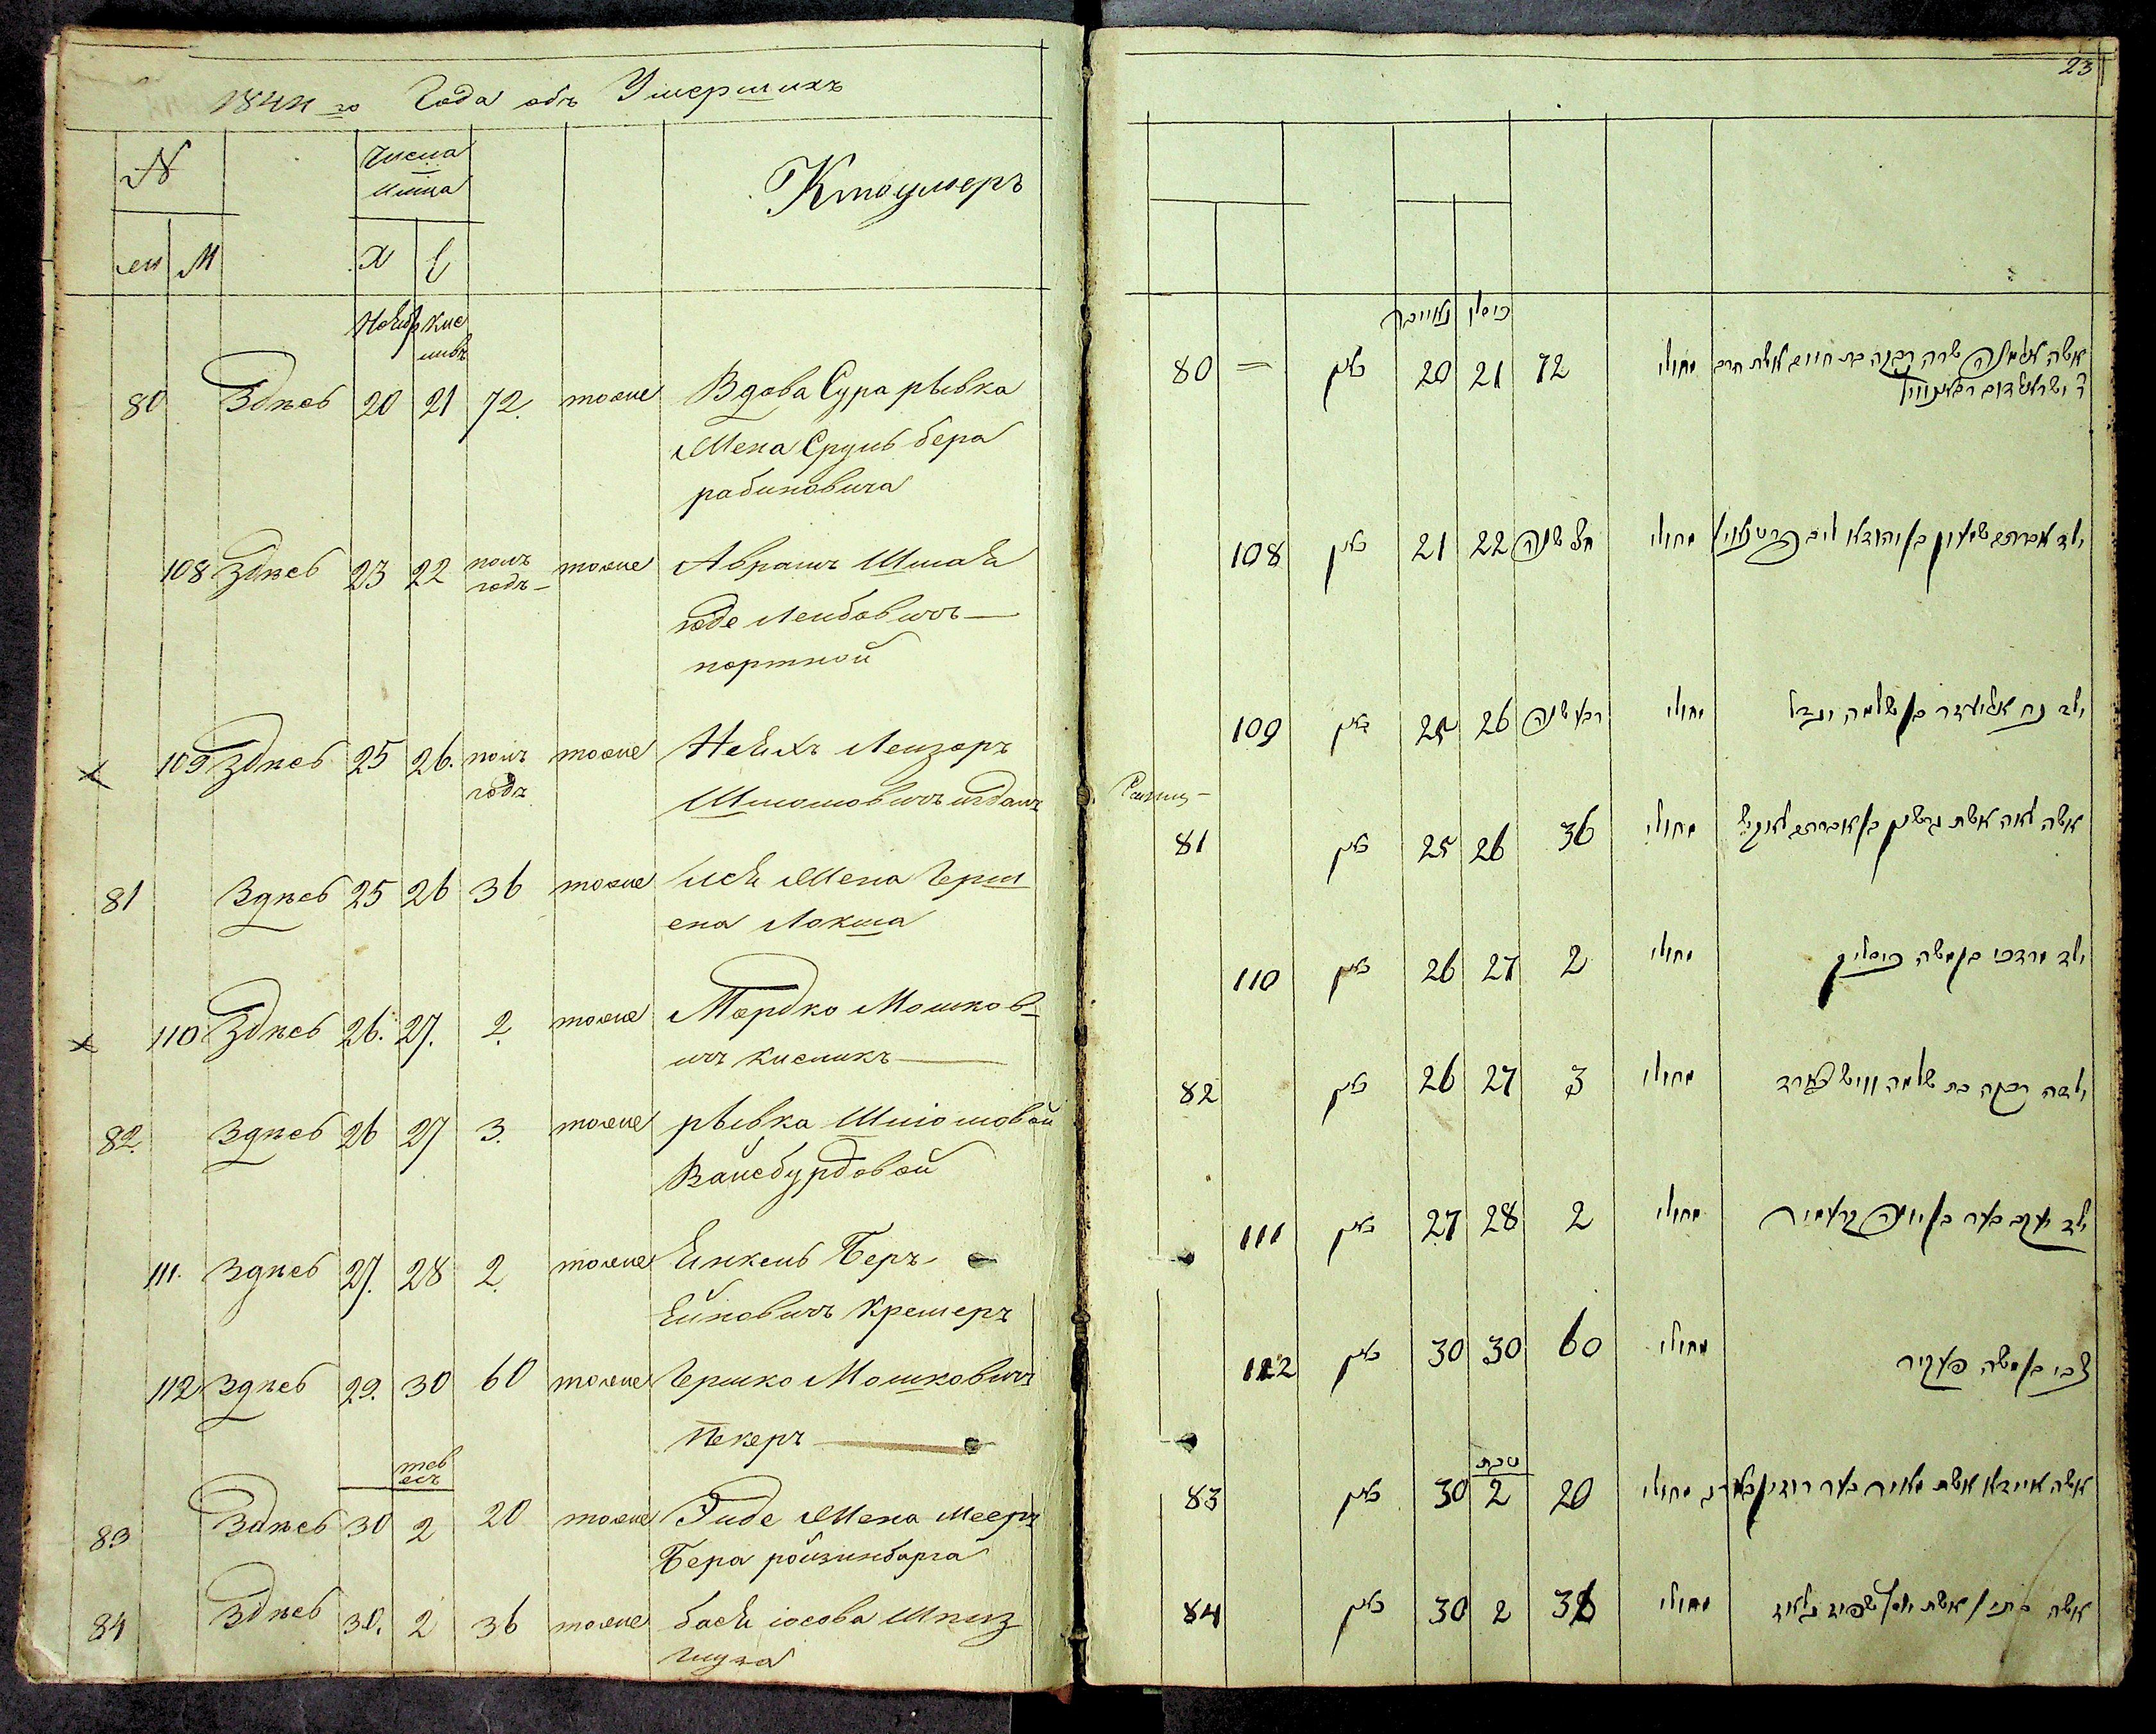 1844 го Года объ Умершихъ
№ Числа Кто умеръ
М Х Е
Ноябр Кис
левъ
80 Здѣсь 20 21 72. тоже Вдова Сура рывка
Жена Сруль бера
рабиновича
108 Здѣсь 23 22 полъ тоже Аврамъ
годъ Лейбовичъ
портной
109 Здѣсь 25 26. полъ тоже Лейзоръ
годъ Шлiомовичъ
81 Здѣсь 25 26 36 тоже Лея Жена Герш
ена Локша
110 Здѣсь 26. 27. 2. тоже Мордко Мошков
ичъ кисликъ
82. Здѣсь 26 27 3. тоже рывка Шлiомовой
Вайсбурдовой
111. Здѣсь 27. 28 2. тоже Янкель Беръ
Кремеръ
112 Здѣсь 29. 30 60 тоже Гершко Мошковичъ
Пекеръ
тев
есъ
83 Здѣсь 30 2 20 тоже Эйде Жена Мееръ
Бера ройзинбарга
84 Здѣсь 30. 2 36 тоже бася iосова Шпиз
23
כיסלו נאוייבר
80 כאן 20 21 72 מחולי אשה אלמנה שרה רבקה בת חיים אשת הרב
ר ישראל דוב ראבינוויץ
108 כאן 21 22 חצי שנה מחולי ילד אברהם שמעון בן יהודא ליב
109 כאן 25 26 רבע שנה מחולי ילד נח אליעזר בן שלמה
81 כאן 25 26 36 מחולי אשה לאה אשת גרשון בן אברהם לאקיש
110 כאן 26 27 2 מחולי ילד מרדכי בן משה כיסליק
82 כאן 26 27 3 מחולי ילדה רבקה בת שלמה ווייסבורד
111 כאן 27 28 2 מחולי ילד יעקב בער בן יונה קרעמיר
112 כאן 30 30 60 מחולי צבי בן משה פעקיר
טבת
83 כאן 30 2 20 מחולי אשה איידא אשת מאיר בער רויזינבארג
84 כאן 30 2 36 מחולי אשה אשת יוסף